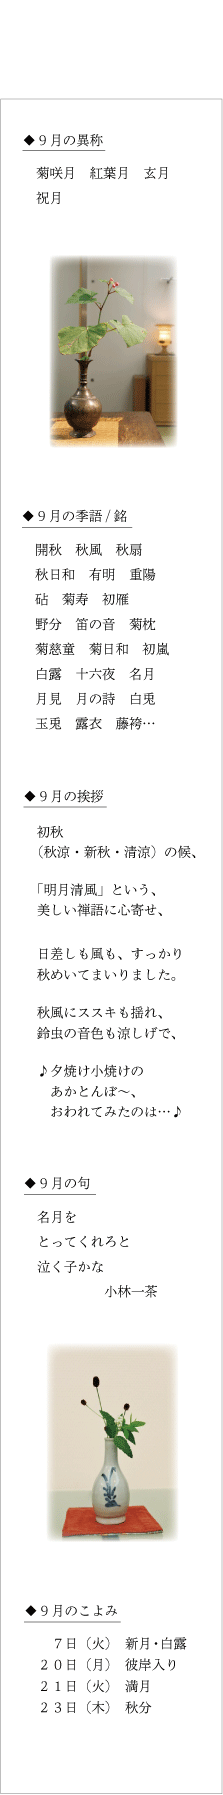 ◆９月の異称
菊咲月　紅葉月　玄月
祝月
◆９月の季語 / 銘
開秋　秋風　秋扇
秋日和　有明　重陽
砧　菊寿　初雁
野分　笛の音　菊枕
菊慈童　菊日和　初嵐
白露　十六夜　名月
月見　月の詩　白兎
玉兎　露衣　藤袴…
◆９月の挨拶
初秋
（秋涼・新秋・清涼）の候、
「明月清風」という、
美しい禅語に心寄せ、
日差しも風も、すっかり
秋めいてまいりました。
秋風にススキも揺れ、
鈴虫の音色も涼しげで、
♪夕焼け小焼けの
あかとんぼ〜、
おわれてみたのは…♪
◆９月の句
名月を
とってくれろと
泣く子かな
小林一茶
◆９月のこよみ
７日（火）　新月・白露
２０日（月）　彼岸入り
２１日（火）　満月
２３日（木）　秋分